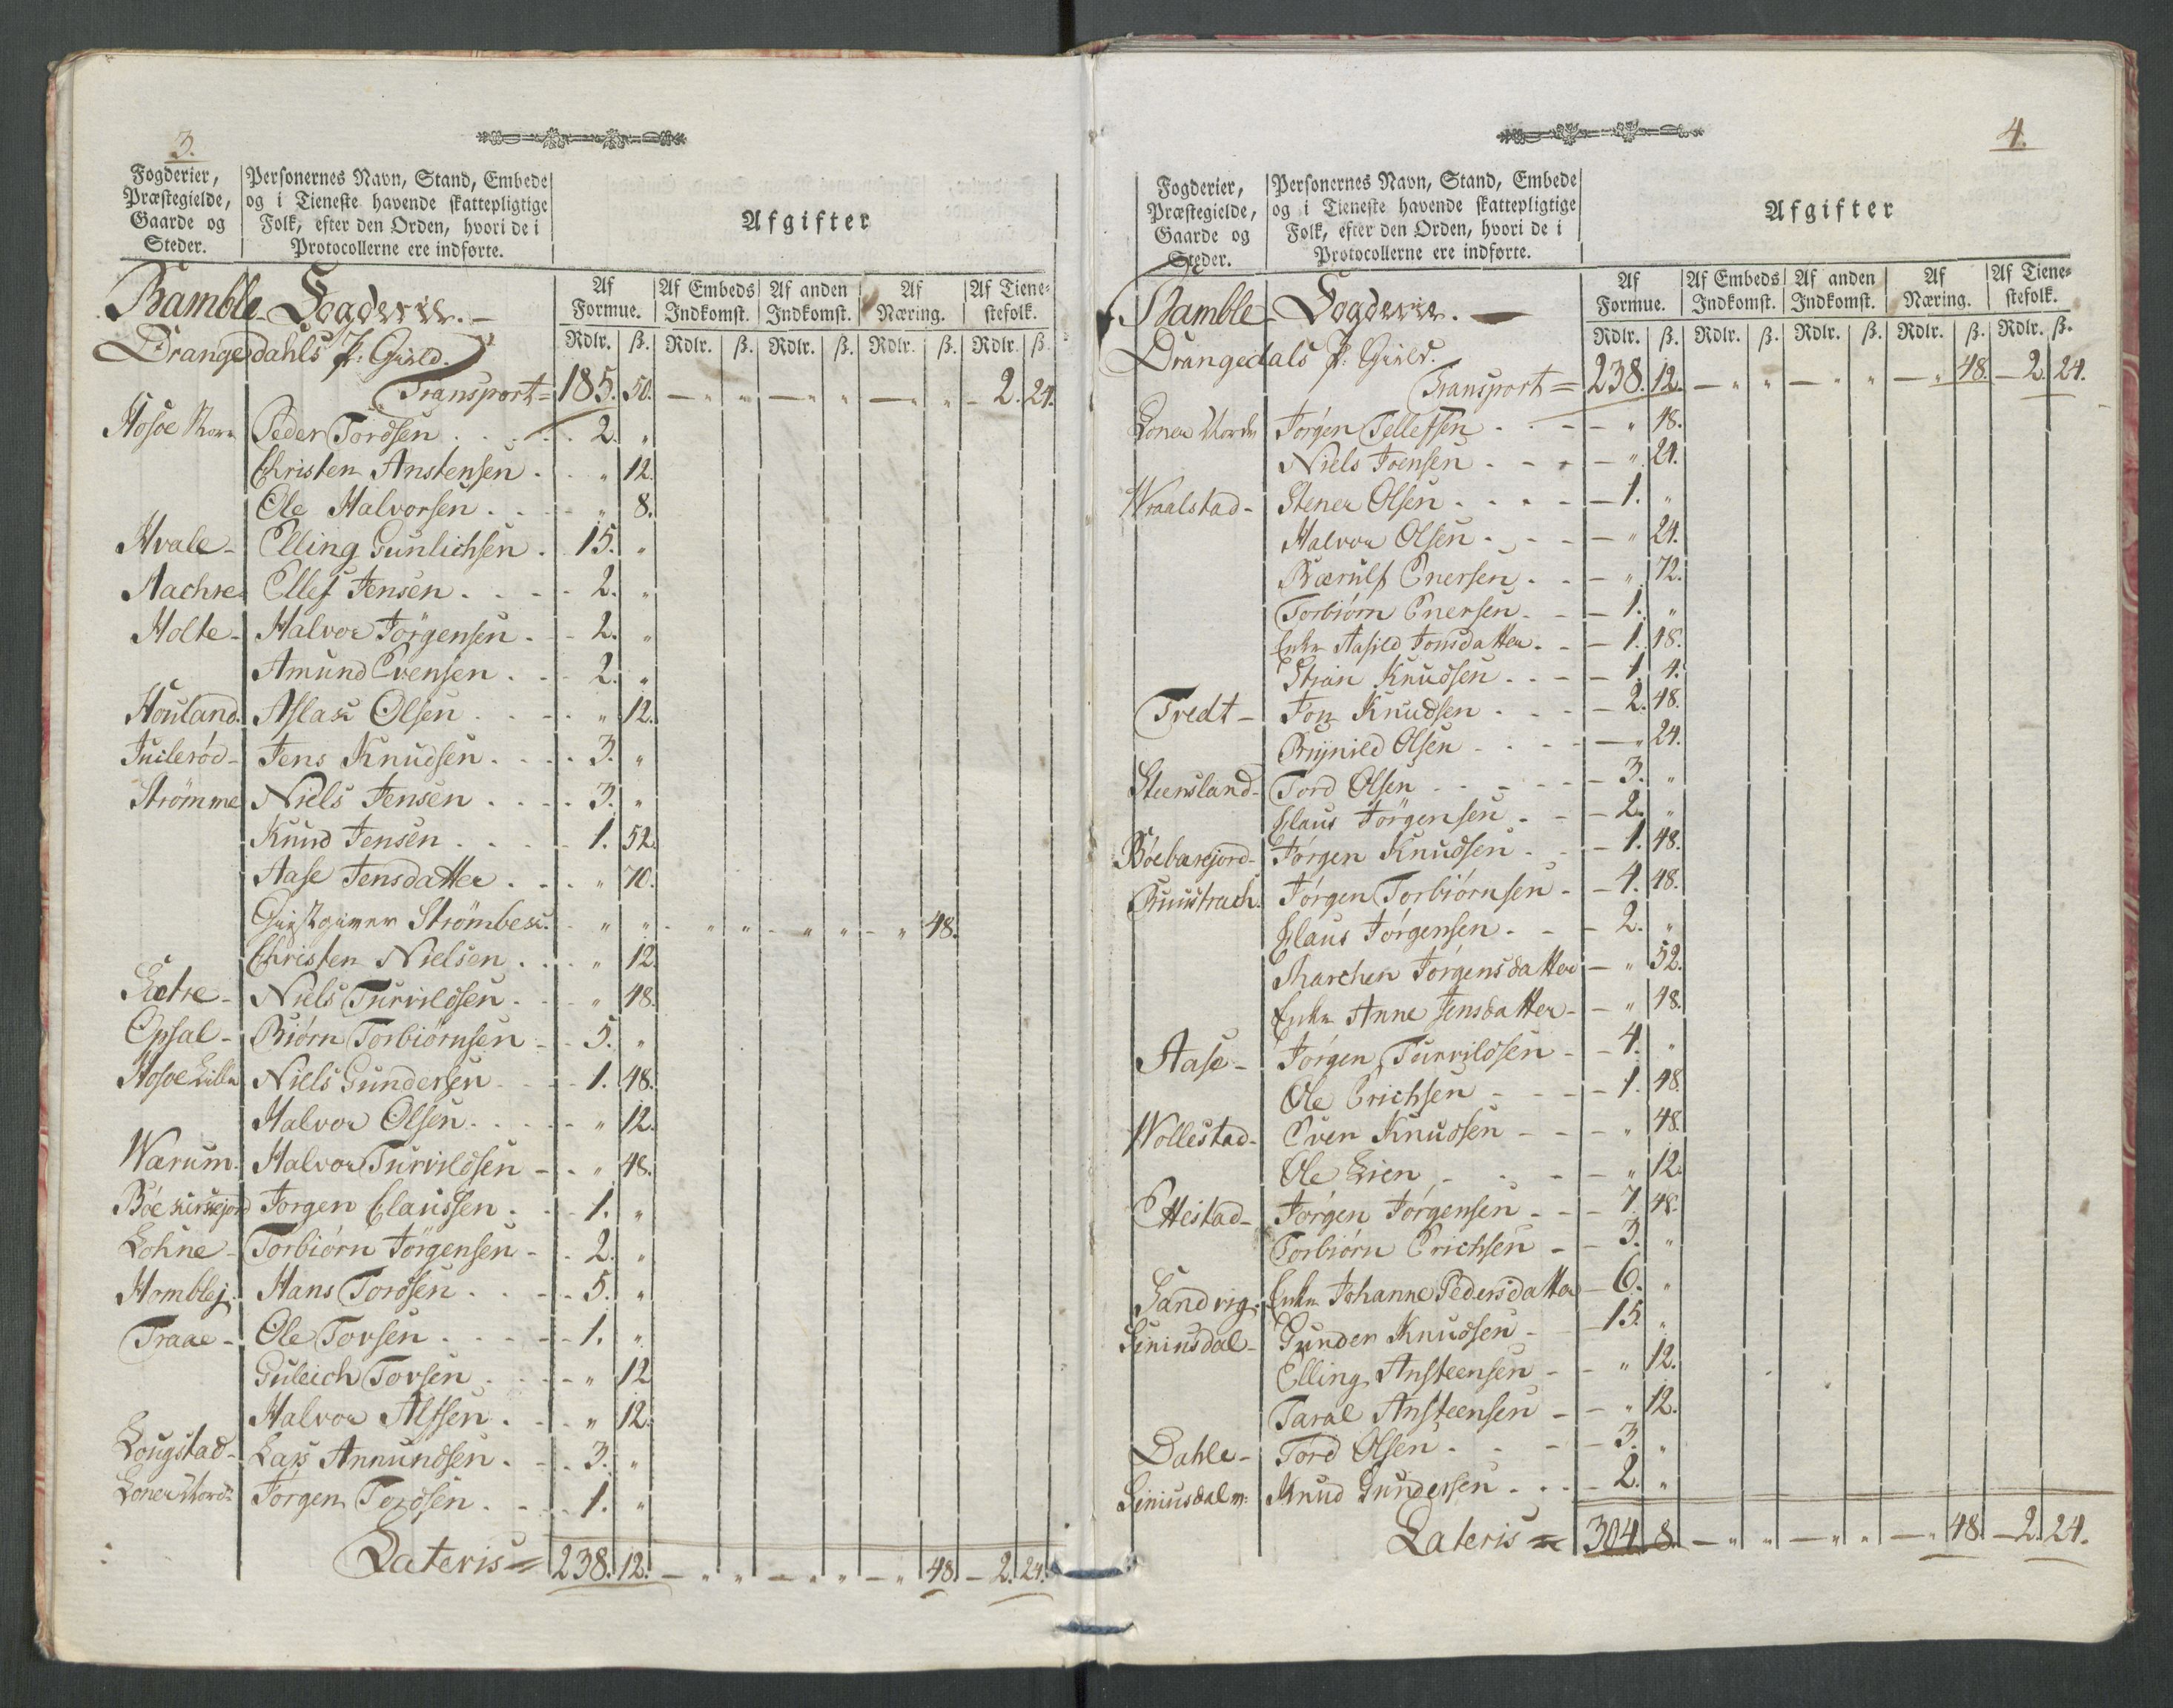 3.
Fogderier, Præstegielde, Gaarde og Steder.
Personernes Navn, Stand, Embede og i Tieneste havende skattepligtige Folk, efter den Orden, hvori de i Protocollerne ere indførte.
Afgifter
Af Formue. Af Embeds Indkomst. Af anden Indkomst. Af Næring. Af Tienestefolk.
Rdlr. ß. Rdlr. ß. Rdlr. ß. Rdlr. ß. Rdlr. ß.
Bamble Fogderie.
Drangedahls P: Gield.
Transport = 185. 50. — " " — " " — " " — 2. 24.
Hosøe Peder Tordsen 2. "
Christen Anstensen " 12.
Ole Halvorsen " 8.
Hvale - Elling Gunlichsen 15. "
Aachre Ellef Jensen 2. "
Holte - Halvor Jörgensen 2. "
Amund Evensen 2. "
Houland Aslak Olsen " 12.
Jens Knudsen 3. "
Strömme Niels Jensen 3. "
Knud Jensen 1. 52.
Aase Jensdatter " 70.
Giestgiver Strömbek " " — " " — " " — " 48.
Christen Nielsen " 12.
Niels Turvildsen " 48.
Opsal - Biörn Torbiörnsen 5. "
Hosøe Lille Niels Gundersen 1. 48.
Halvor Olsen " 12.
Warum Halvor Turvildsen " 48.
Böe Jørgen Claussen 1. "
Lohne - Torbiörn Jörgensen 2. "
Homblej. Hans Tordsen 5. "
Traae - Ole Tovsen 1. "
Guleich Tovsen " 12
Halvor Alfsen " 12.
Lougstad - Lars Anmundsen 3. "
Loner Jørgen Tordsen 1. "
Lateris = 238. 12. — " " — " " — " 48. — 2. 24.
4.
Fogderier, Præstegielde, Gaarde og Steder.
Personernes Navn, Stand, Embede og i Tieneste havende skattepligtige Folk, efter den Orden, hvori de i Protocollerne ere indførte.
Afgifter
Af Formue. Af Embeds Indkomst. Af anden Indkomst. Af Næring. Af Tienestefolk.
Rdlr. ß. Rdlr. ß. Rdlr. ß. Rdlr. ß. Rdlr. ß.
Bamble Fogderie. —
Drangedals P: Gield.
Transport = 238. 12. — " " — " " — " 48. — 2. 24.
Loner Jørgen Tellefsen " 48.
Niels Joensen " 24.
Wraalstad - Stener Olsen 1. "
Halvor Olsen " 24.
Bærulf Enersen " 72.
Torbiörn Enersen 1. "
Enke Aasild Jonsdatter 1. 48.
Stran Knudsen 1. 4.
Tvedt - Jon Knudsen 2. 48.
Brynild Olsen " 24.
Steensland - Tord Olsen 3. "
Claus Jörgensen 2. "
Jørgen Knudsen 1. 48.
Jørgen Torbiörnsen 4. 48.
Claus Jørgensen 2. "
Marchen Jørgensdatter " 52.
Enke Anne Jensdatter " 48.
Aase - Jørgen Turvildsen 4. "
Ole Erichsen 1. 48.
Wollestad - Even Knudsen " 48.
Ole Lien " 12.
Ettestad - Jørgen Jørgensen 7. 48.
Torbiörn Erichsen 3. "
Sandvig Enke Johanne Pedersdatter 6. "
Gunder Knudsen 15. "
Elling Ansteensen " 12.
Taral Ansteensen " 12.
Dahle - Tord Olsen 3. "
Knud Gundersen 2. "
Lateris = 304. 8. — " " — " " — " 48. — 2. 24.